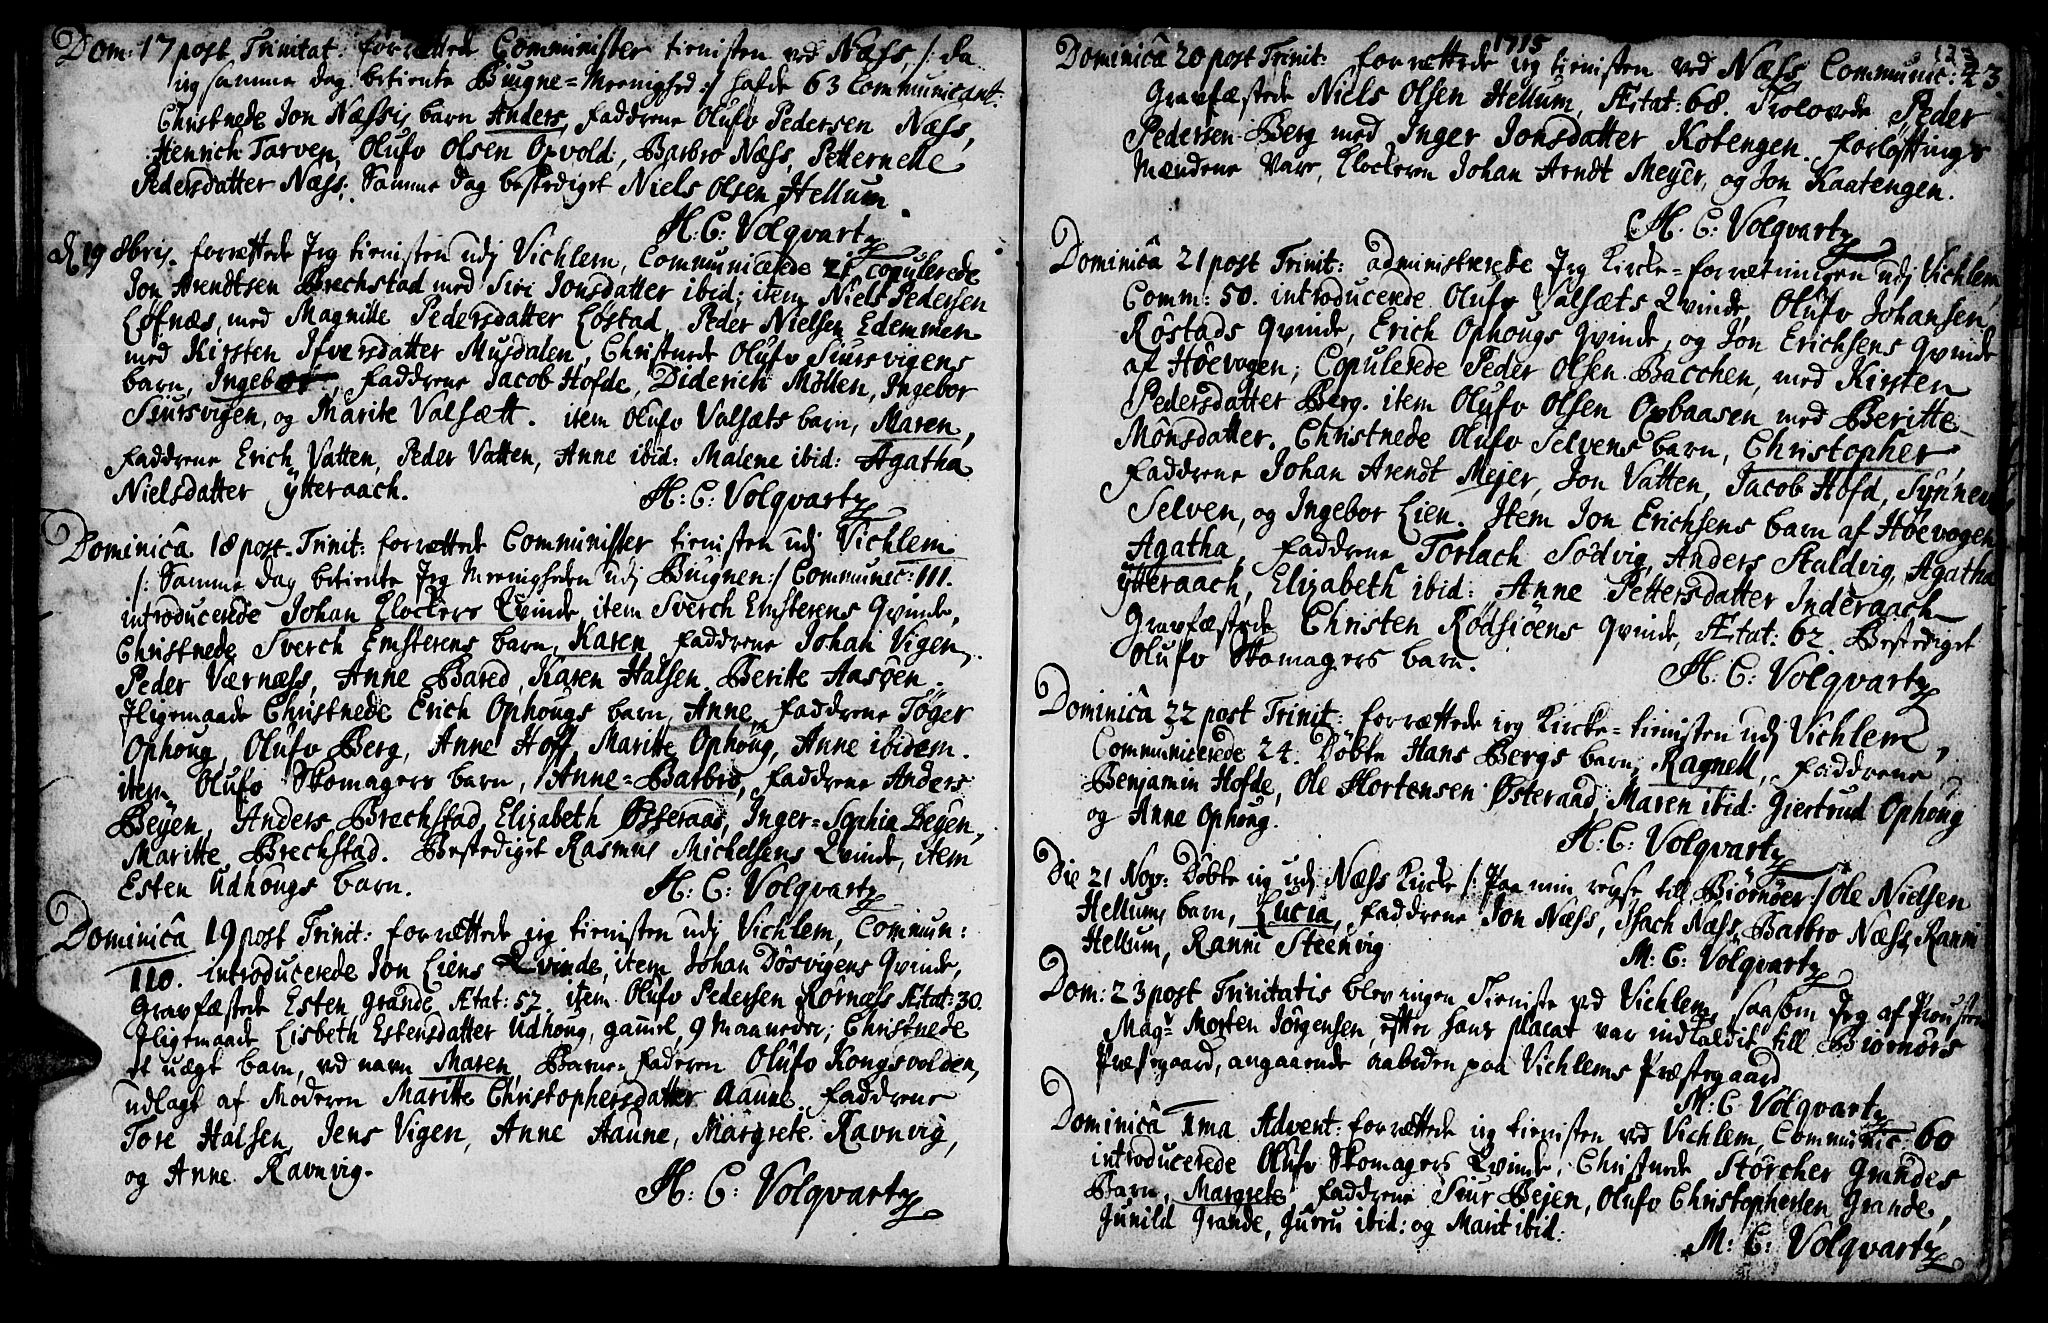 Dom: 17 post Trinitat. forrættede Comminister tienisten ved Næss, /: da
ieg samme dag betiente Biugne=Meenighed :/ hafde 63 Communicant.
Christnede Jon Næssis barn Anders, faddrene Olufv Pedersen Næss,
Henrich Tarven, Olufv Olsen Opvold, Barbro Næss, Petternelle
Pedersdatter Næss. Samme dag bestediget Niels Olsen Hellum.
H: C: Volqvartz
d 19 8bris. forrættede Jeg tienisten udj Vichlem, Communicerede 21 Copulerede
Jon Arendtsen Brechstad med Siri Jonsdatter ibid: item Niels Pedersen
Löfnæs, med Magnille Pedersdatter Löstad, Peder Nielsen Edemmen
med Kirsten Ifversdatter Musdalen, Christnede Olufv Siursvigens
barn, Ingebor, faddrene Jacob Hofde, Diderich Möllen, Ingebor
Siursvigen, og Marite Valsætt. item Olufv Valsæts barn, Maren,
faddrene Erich Vatten, Peder Vatten, Anne ibid: Malene ibid: Agatha
Nielsdatter ÿtteraach.
H: C: Volqvartz
Dominica 18 post. Trinit: forrættede Comminister tienisten udj Vichlem
/: Samme dag betiente Jeg Meenigheden udj Buignen :/ Communic: 111.
introducerede Johan Clockers Qvinde, item Sverch Emsterens Qvinde,
Christnede Sverch Emsterens barn, Karen, faddrene Johan Vigen,
Peder Værnæss, Anne Bared, Karen Halsen, Beritte Aasöen.
Jligemaade Christnede Erich Ophougs barn, Anne, faddrene Töger
Ophoug, Olufv Berg, Anne Hoff, Maritte Ophoug, Anne ibidem.
item Olufv Skomagers barn, Anne=Barbro, faddrene Anders
Beÿen, Anders Brechstad, Elizabeth Österaad, Inger=Sophia Beÿen,
Maritte Brechstad. Bestediget Rasmus Michelsens Qvinde, item
Esten Udhougs barn.
H: C: Volqvartz
Dominica 19 post Trinit: forrættede jeg tienisten udj Vichlem, Commun:
110. introducerede Jon Liens Qvinde, item Johan Dösvigens Qvinde,
Gravfæstede Esten Grande, Ætat: 52 item Olufv Pedersen Rörnæss Ætat: 30.
Jligemaade Lisbeth Estensdatter Udhoug, gamel, 9 Maaneder; Christnede
et uægt barn, ved navn Maren, Barne=faderen Olufv Kongsvolden,
udlagt af Moderen Maritte Christophersdatter Aaune. faddrene
Tore Halsen, Jens Vigen, Anne Aaune, Margrete Ravnvig,
og Anne Ravnvig.
H: C: Volqvartz
1715
Dominica 20 post Trinit: forrættede jeg tienisten ved Næss Communic: 43
Gravfæstede Niels Olsen Hellum, Ætat: 68. Trolovede Peder
Pedersen Berg med Inger Jonsdatter Kotengen. forlöftings
Mændene vare, Clockeren Johan Arndt Meyer, og Jon Kaatengen.
H. C: Volqvartz
Dominica 21 post Trinit: administrerede Jeg Kirke=forrætningen udj Vichlem,
Comm: 50. introducerede Olufv Valsæts Qvinde, Olufv Johansen
Röstads Qvinde, Erich Ophougs Qvinde, og Jon Erichsens Qvinde
af Höevogen; Copulerede Peder Olsen Bacchen, med Kirsten
Pedersdatter Berg. item Olufv Olsen Opbaasen med Beritte
Mönsdatter. Christnede Olufv Selvens barn, Christopher,
faddrene Johan Arendt Mejer, Jon Vatten, Jacob Hofd, Synnev
Selven, og Ingebor Lien. Item Jon Erichsens barn af Höevogen
Agatha, faddrene Torlach Södvig, Anders Staldvig, Agatha
ÿtteraach, Elizabeth ibid: Anne Pettersdatter Inderaach
Gravfæstede Christen Rödsiöens Qvinde, Ætat: 62. Bestediget
Olufv Skomagers barn.
H: C: Volqvartz
Dominica 22 post Trinit: forrættede ieg Kircke=tienisten udj Vichlem,
Communicerede 24. Döbte Hans Bergs barn, Ragnell, faddrene
Benjamin Hofde, Ole Mortensen Österaad, Maren ibid: Giertrud Ophoug
og Anne Ophoug.
H: C: Volqvartz
Die 21 Nov: Döbte ieg udj Næss Kirke /: Paa min reyse till Biörnöer :/ Ole Nielsen
Hellums barn, Lucia, faddrene Jon Næss, Isach Næss, Barbro Næss, Ranni
Hellum, Ranni Steenvig
M: C: Volqvartz
Dom: 23 post Trinitatis blev ingen Tieniste ved Vichlem, saasom Jeg af Prousten
Magr Morten Jörgensen, efter hans placat var indkaldit till Biörnörs
Præstegaard, angaaende aaboden paa Vichlems Præstegaard
M: C Volqvartz
Dominica 1ma Advent: forrættede ieg tienisten ved Vichlem, Communic: 60
introducerede Olufv Skomagers Qvinde, Christnede Störcher Grandes
Barn, Margrete faddrene Siur Bejen, Olufv Christophersen Grande,
Gunild Grande, Gurru ibid: og Marit ibid:
M: C: Volqvartz